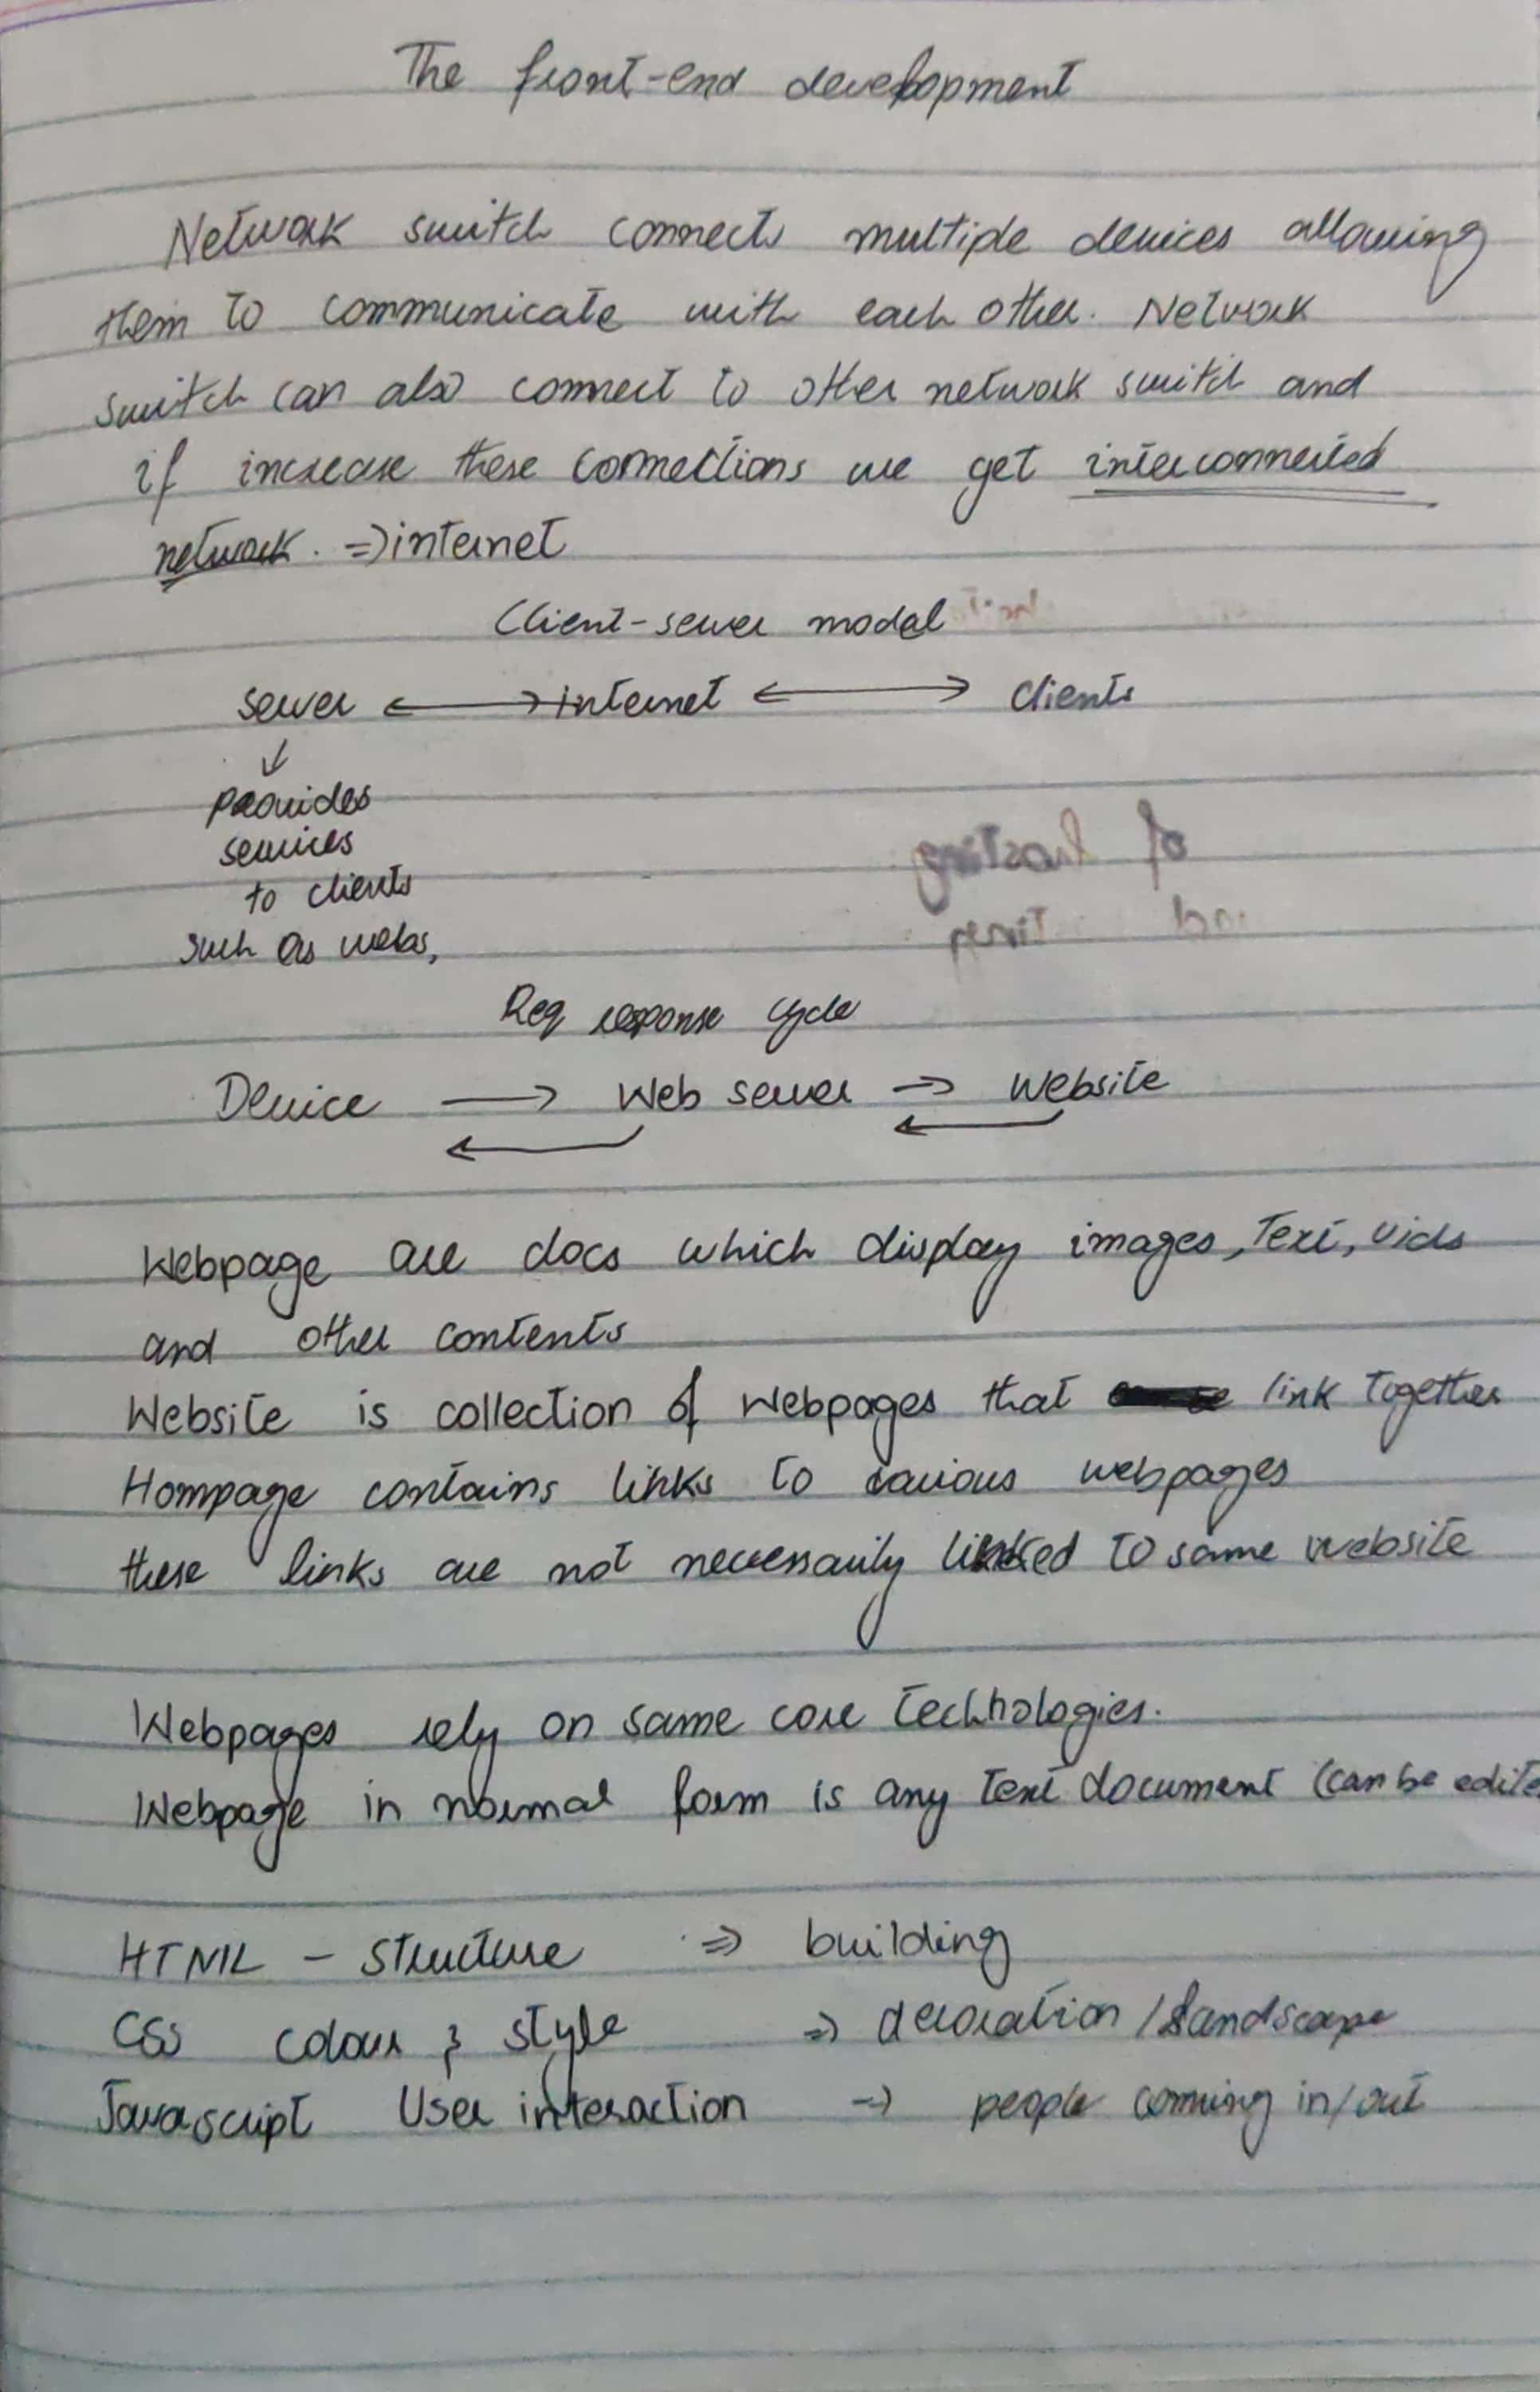 The front-end development
Network switch connects multiple devices allowing
them to communicate with each other. Network
switch can also connect to other network switch and
if increase these connections we get interconnected
network. => internet
Client-server modal
server <-> internet <-> clients
↓
provides
services
to clients
such as webs,
Req response cycle
Device → Web server → Website
← ←
Webpage are docs which display images, Text, vids
and other contents
Website is collection of webpages that link together
Hompage contains links to various webpages
these links are not necessarily linked to same website
Webpages rely on same core technologies.
Webpage in normal form is any text document (can be edite
HTML - structure => building
CSS colour & style => decoration / Landscape
Javascript User interaction -> people coming in/out